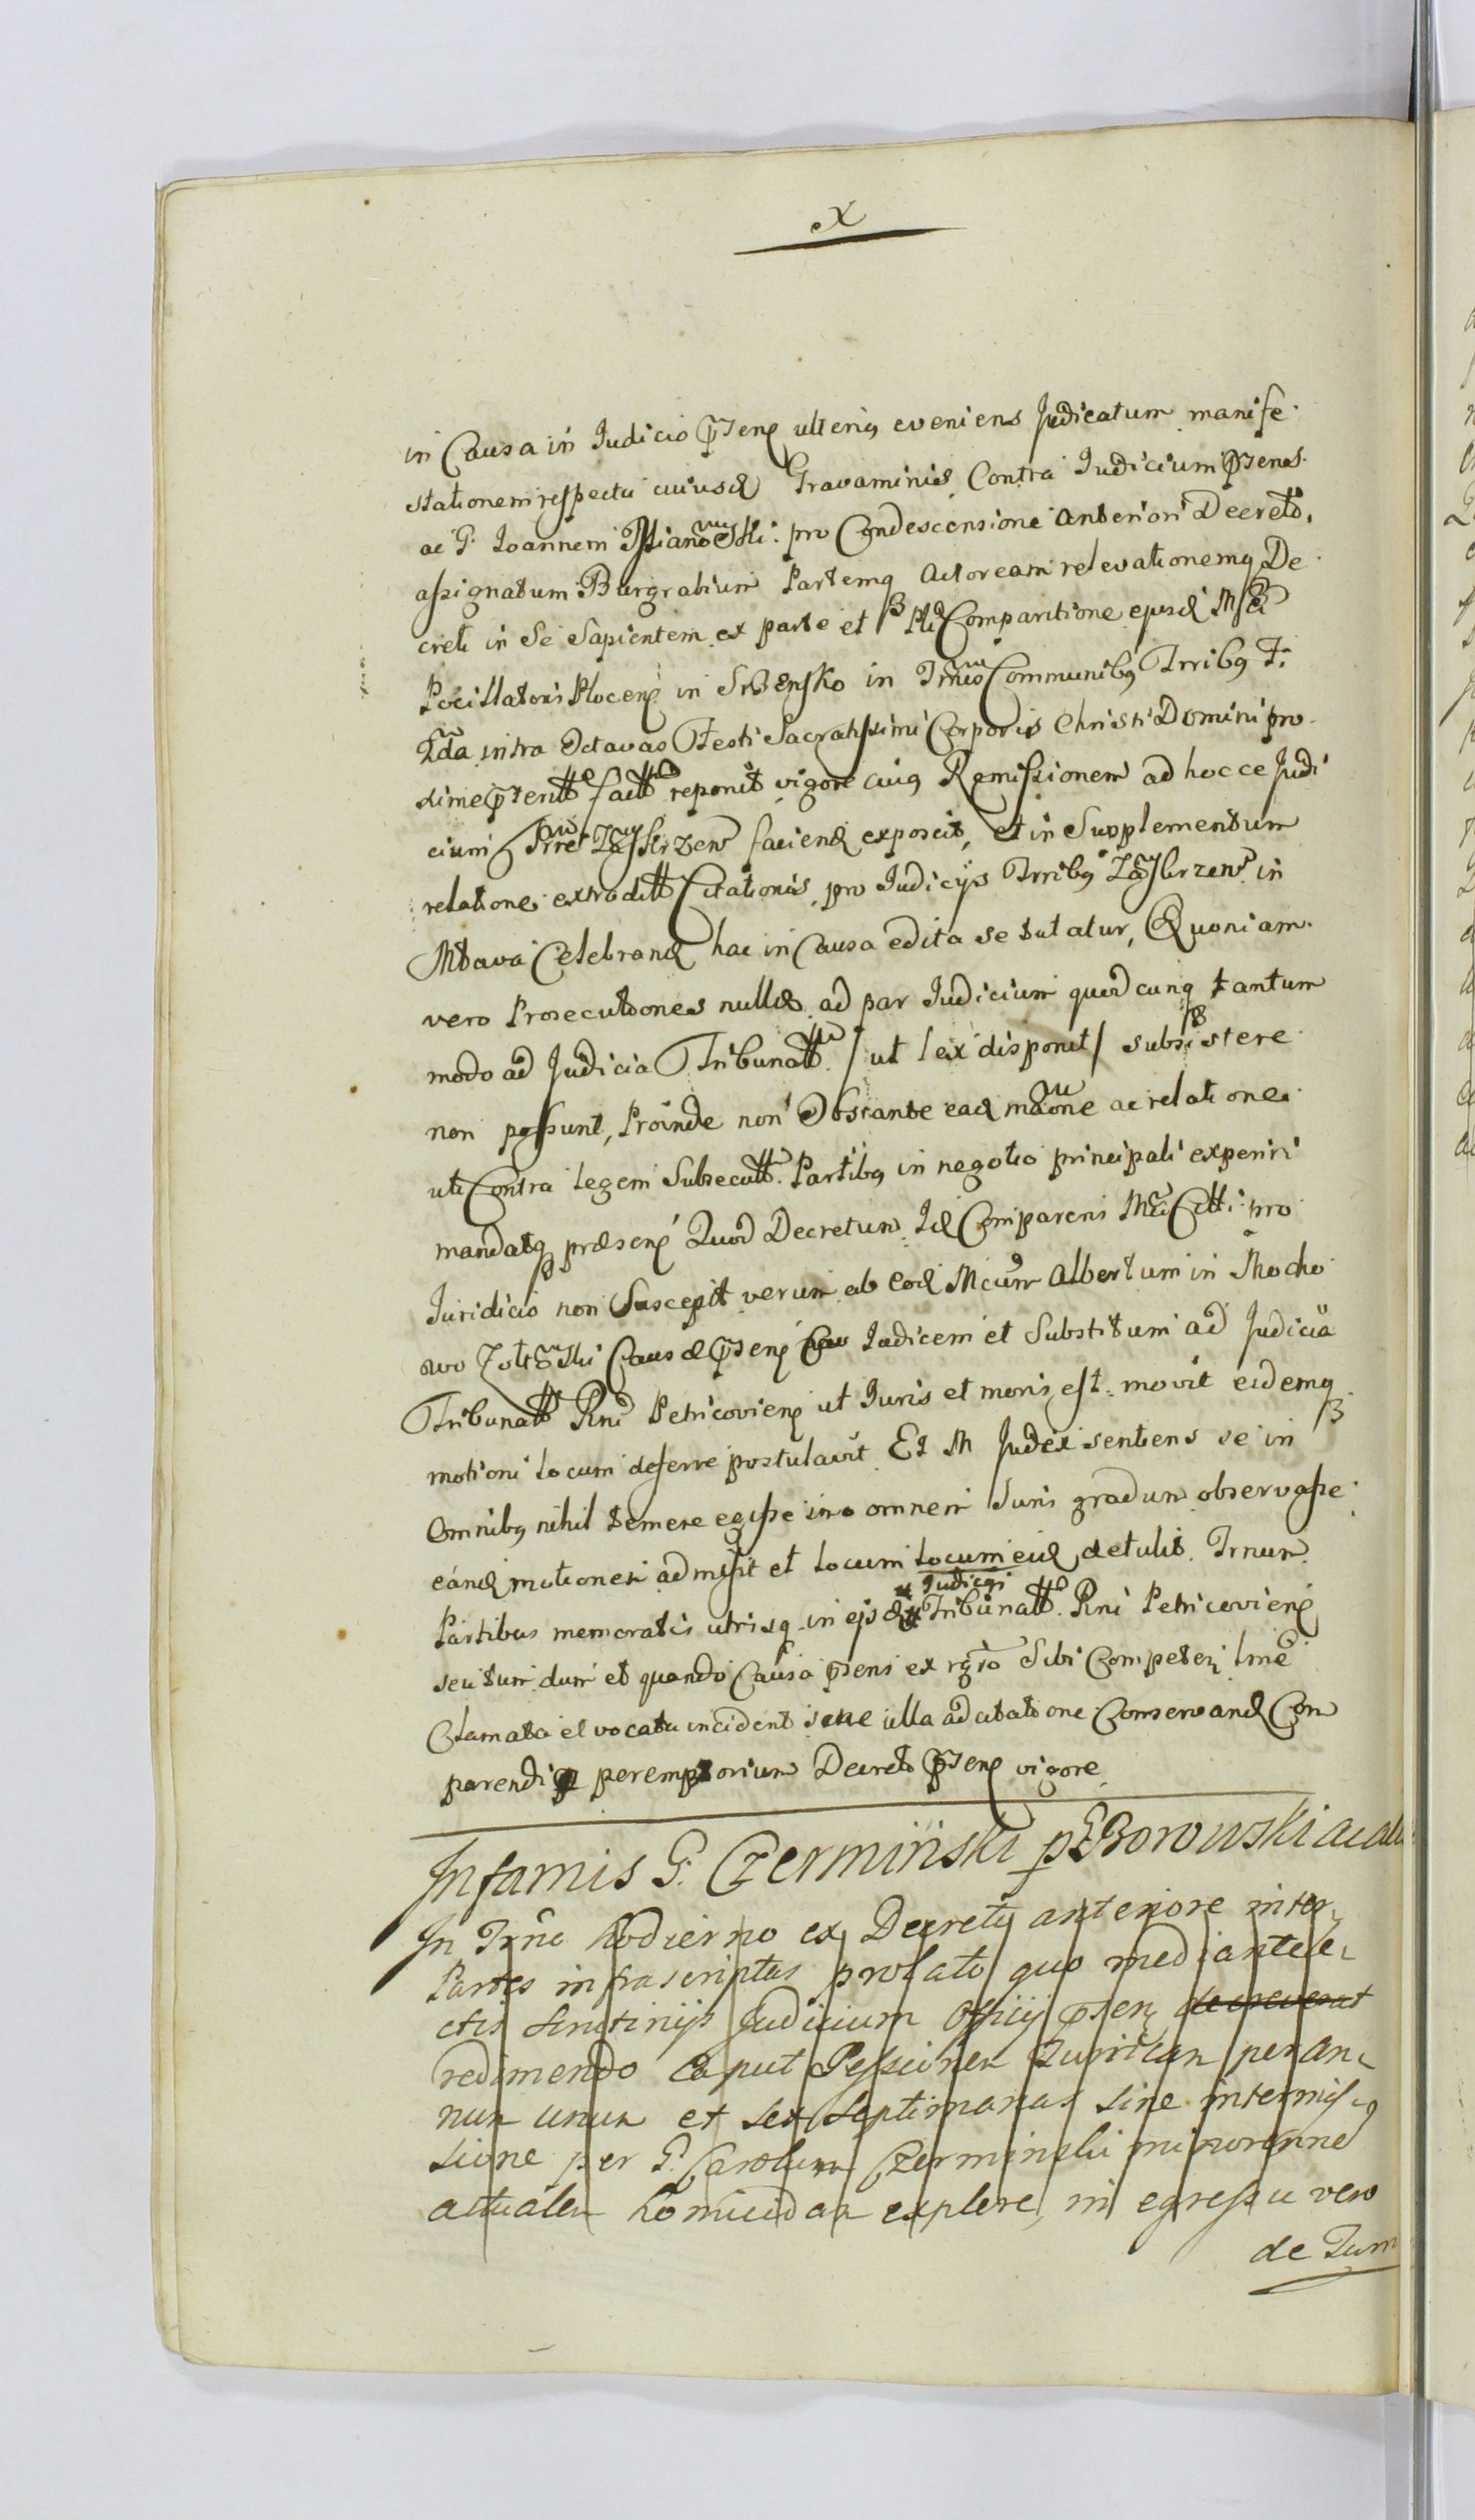 X
in Causa in Judicio pꝛsenꝭ ulteriꝯ eveniens Judicatum manife
stationem respectu cuiusd Gravaminis Contra Judicium pꝛsens
ac G. Joannem pro Condescensione anteriori Decreto
assignatum Burgrabium Partemq Actoream relevationemq De
creti in Se Sapientem ex parte et Comparitione ejusd
Pocillatoris Plocenꝭ in Srzensko in Trmis Communibꝯ Trribꝯ F:
2da intra Octavas Festi Sacratissimi Corporis Christi Domini pro
xime pꝛteritt factt reponit vigore cuiꝯ Remissionem ad hocce Judi
cium Trre Zaskrzen faciend exposcit, et in Supplementum
relationes extraditt Citationis pro Judicijs Trribꝯ Zaskrzen in
Mlava Celebrand hac in Causa edita se tutatur, Quoniam
vero Prosecutiones nullæ ad par Judicium quodcunq tantum
modo ad Judicia Tribunatt / ut lex disponit / subsistere
non possunt, Proinde non Obstante ead maõne ac relatione
uti Contra legem Subsecutt Partibꝯ in negotio principali experiri
mandatq præsenꝭ Quod Decretum Id Comparens pro
Juridicio non Suscepit verum ab eod Mcum Albertum in Mocho
wo Causæ pꝛsenꝭ Judicem et Substitum ad Judicia
Tribunatt Rni Petricovienꝭ ut Juris et moris est movit eidemq
motioni locum deferre postulavit Et M Judex sentiens se in
Omnibꝯ nihil temere egisse imo omnem Juris gradum observasse
eand motionem admisit et locum locum eid detulit Trnum
Judicyi
Partibus memoratis utrisq in ejsd Tribunatt Rni Petricovienꝭ
seu tum dum et quando Causa pꝛsens ex rgro Sibi Competen
Clamata et vocata inciderit sine ulla adcitatione Conservand Com
parendiq peremptorium Decreto pꝛsenꝭ vigore
Infamis G. Czerminski p G Borowski ac
In Trno hodierno ex Decreto anteriore inter
Partes infrascriptas prolato quo mediante le
ctis Scrutinijs Judicium Officij pꝛsen decreverat
redimendo Caput Sessionem Turricam per an
num unum et sex Septimanas sine intermis
sione per G. Carolum Czerminski minorenne
actualem homicidam explere, in egressu vero
de Turri